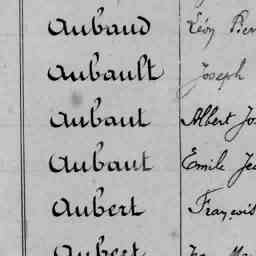 Aubaud Léon
Aubault Joseph
Aubaut Albert
Aubaut Emile
Aubert François
Aubert